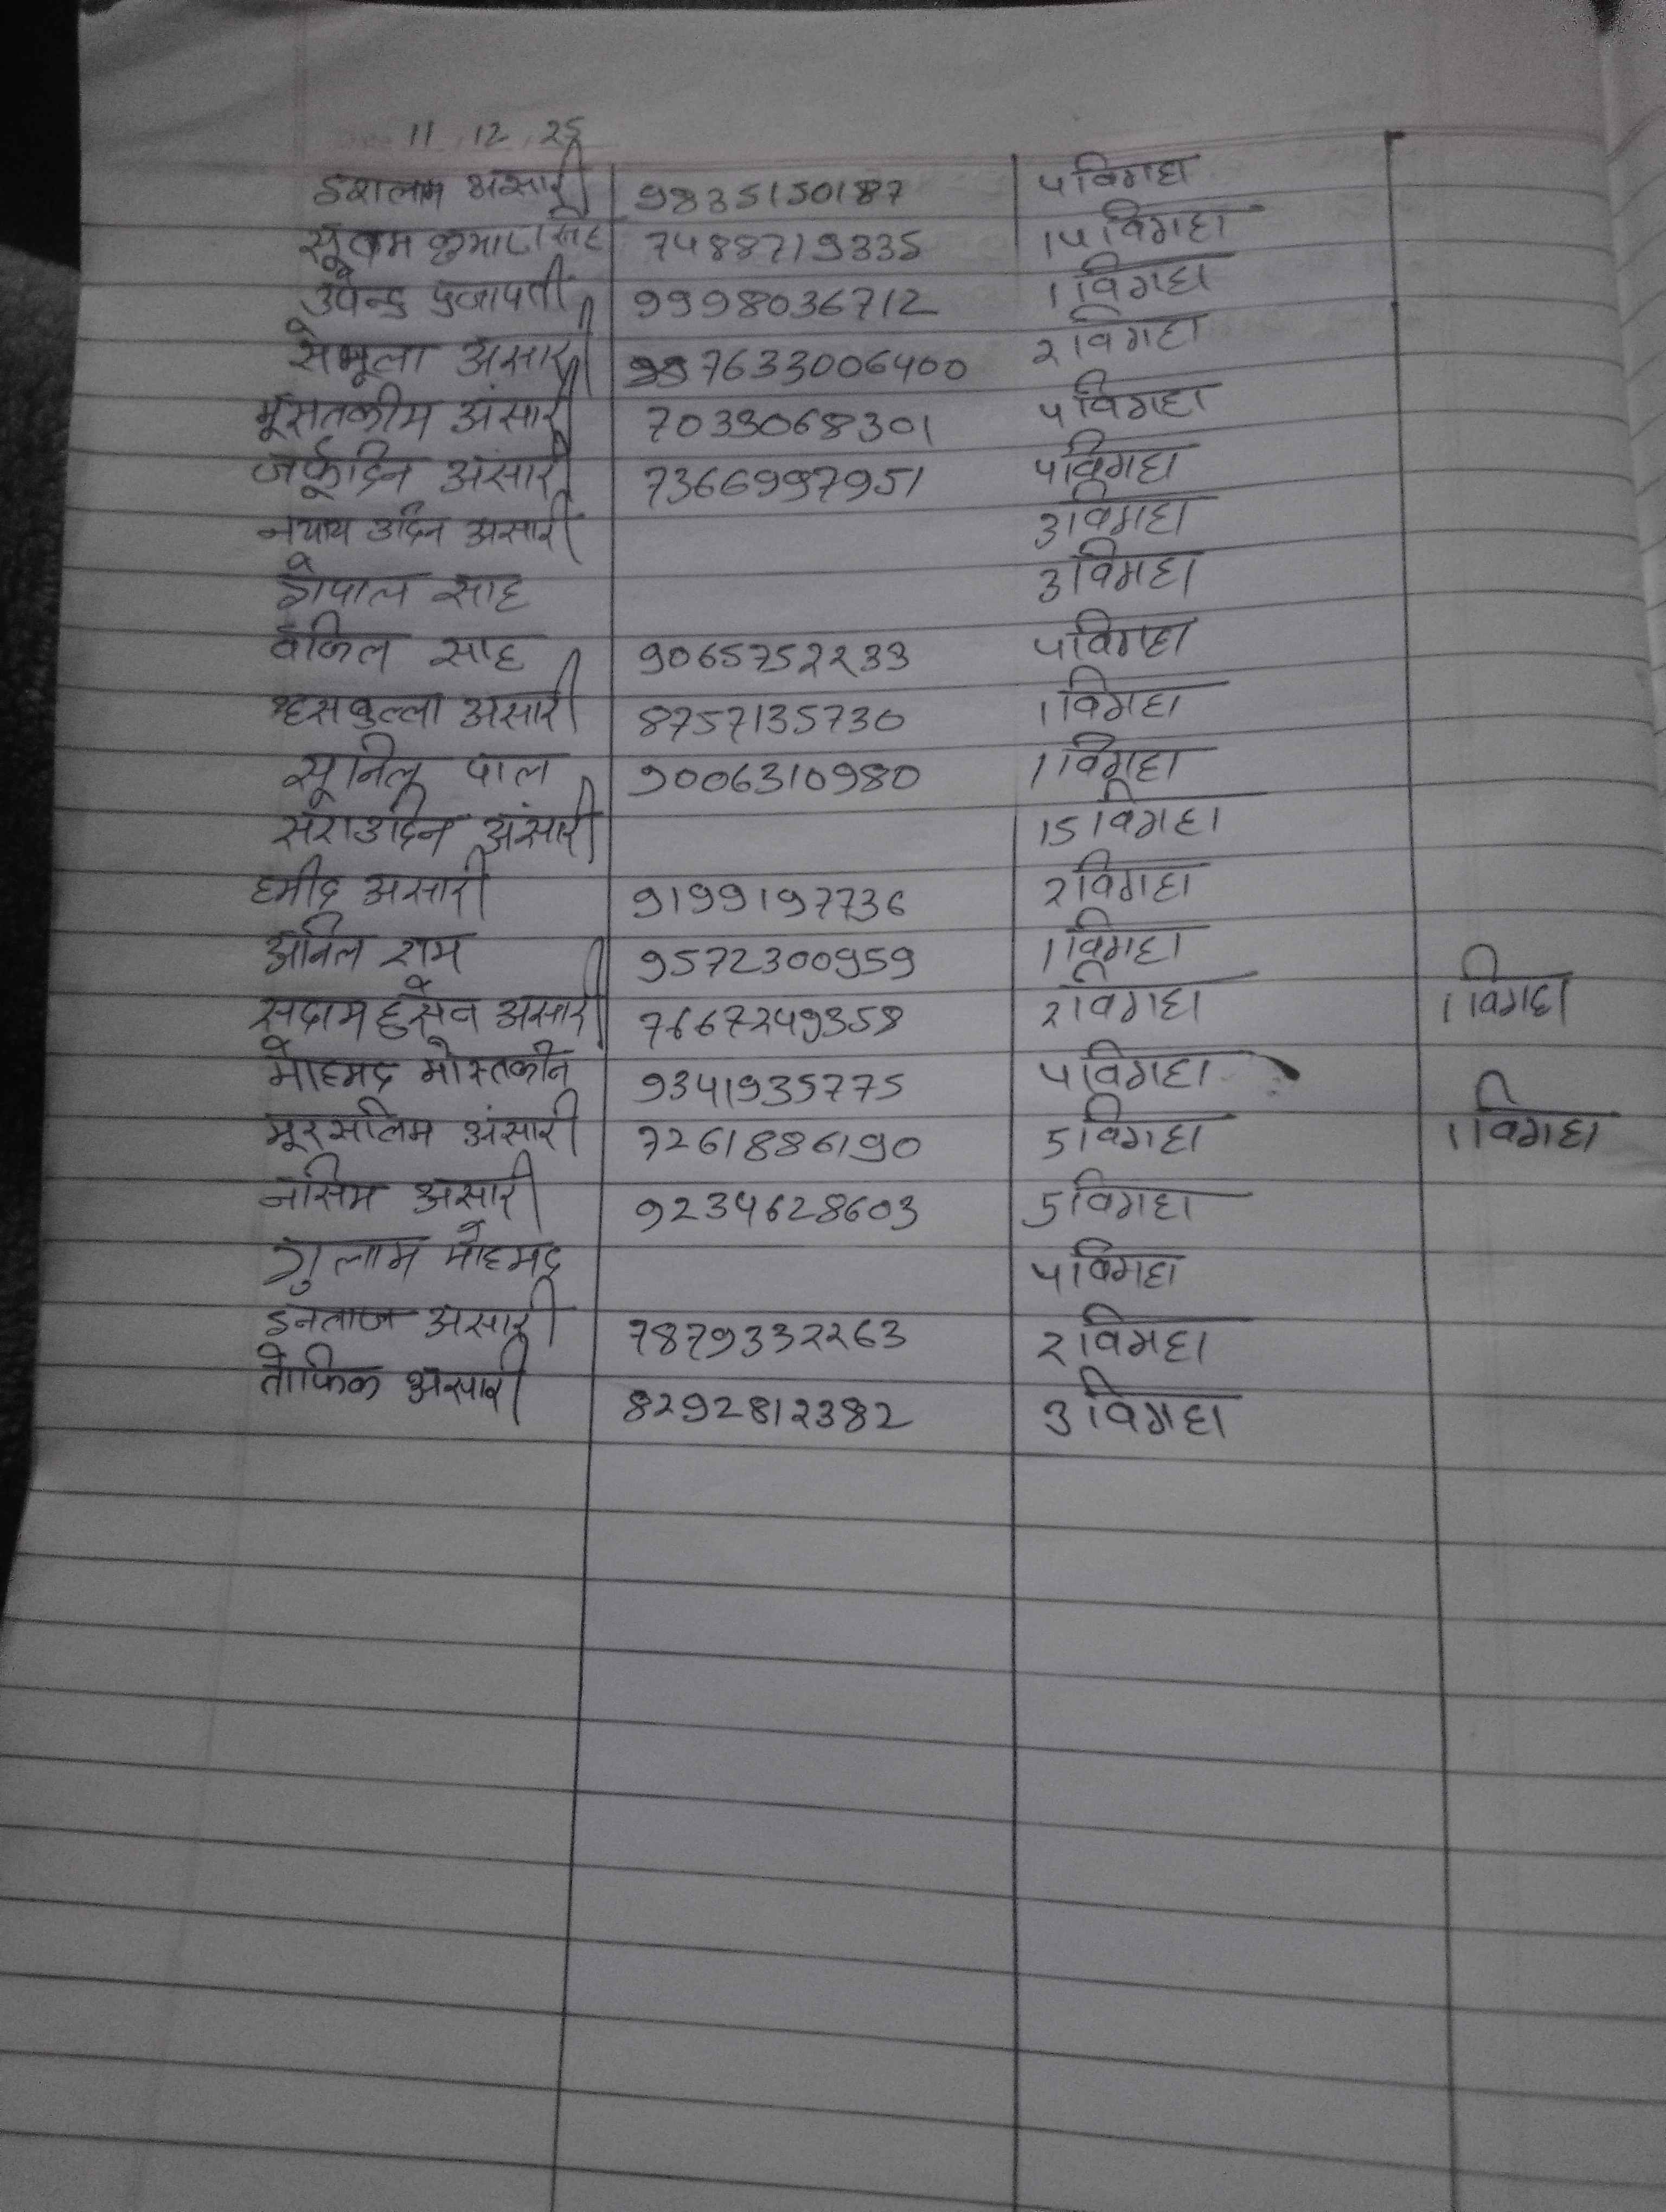 11.12.25
इशलाम अंसारी 9835150187 4 विगहा
सूवम कुमार सिंह 7488719335 14 विगहा
उपेन्द्र प्रजापती 9998036712 1 विगहा
सेमूला अंसारी 7633006400 2 विगहा
मूसतकीम अंसारी 7033068301 4 विगहा
जर्फूदिन अंसारी 7366997951 4 विगहा
उदिन अंसारी 3 विगहा
गोपाल साह 3 विगहा
वकिल साह 9065752233 4 विगहा
अंसारी 8757135730 1 विगहा
सूनिल पाल 9006310980 1 विगहा
अंसारी 15 विगहा
हमीद अंसारी 9199197736 2 विगहा
अनिल राम 9572300959 1 विगहा
सदाम हुसेन अंसारी 7667249358 2 विगहा 1 विगहा
मोहमद मोस्तकीन 9341935775 4 विगहा
मूरसलिम अंसारी 7261886190 5 विगहा 1 विगहा
नसिम अंसारी 9234628603 5 विगहा
गुलाम मोहमद 4 विगहा
इनताज अंसारी 7879332263 2 विगहा
तोफिक अंसारी 8292812382 3 विगहा